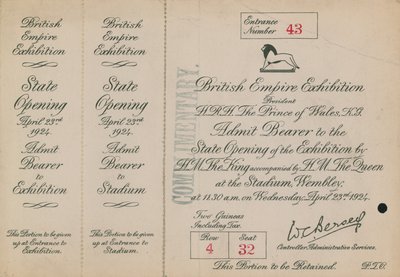 British
Empire
Exhibition
State
Opening
April 23rd
1924.
Admit
Bearer
to
Exhibition
This Portion to be given
up at Entrance to
Exhibition.
British
Empire
Exhibition
State
Opening
April 23rd
1924.
Admit
Bearer
to
Stadium
This Portion to be given
up at Entrance to
Stadium.
COMPLIMENTARY.
Entrance
Number 43
British Empire Exhibition
President
H.R.H. The Prince of Wales, K.G.
Admit Bearer to the
State Opening of the Exhibition by
H.M. The King accompanied by H.M. The Queen
at the Stadium, Wembley,
at 11.30 a.m. on Wednesday, April 23rd 1924.
Two Guineas
Including Tax.
Row
4
Seat
32
Controller, Administrative Services.
This Portion to be Retained.
P.T.O.